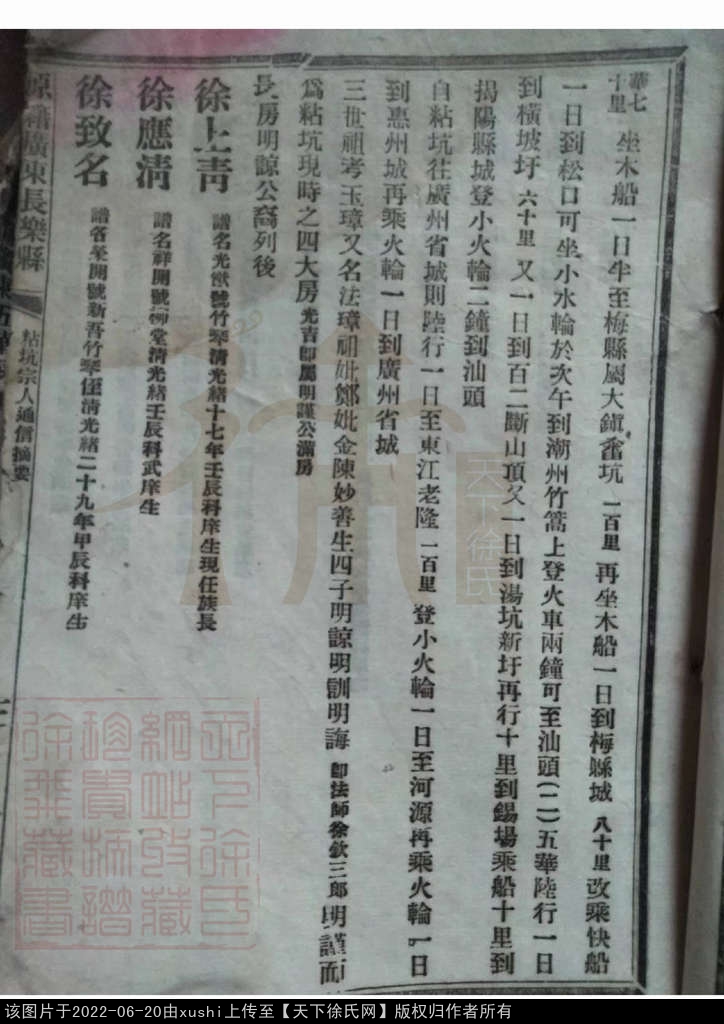 華七十里 坐木船一日半至梅縣屬大鎮畬坑 一百里 再坐木船一日到梅縣城 八十里 改乘快船
一日到松口可坐小水輪於次午到潮州竹篙上登火車兩鐘可至汕頭(二)五華陸行一日
到橫坡圩 六十里 又一日到百二斷山頂又一日到湯坑新圩再行十里到錫場乘船十里到
揭陽縣城登小火輪二鐘到汕頭
自粘坑往廣州省城則陸行一日至東江老隆 一百里 登小火輪一日至河源再乘火輪一日
到惠州城再乘火輪一日到廣州省城
三世祖考玉璋又名法璋祖妣鄭妣金陳妙善生四子明諒明訓明誨 卽法師徐欽三郎 明謹而
爲粘坑現時之四大房 光吉卽屬明謹公滿房
長房明諒公裔列後
徐上青 譜名光 號竹琴清光緒十七年壬辰科庠生現任族長
徐應清 譜名祥開號柳堂清光緒壬辰科武庠生
徐致名 譜名 開號新吾竹琴侄清光緒二十九年甲辰科庠生
原籍廣東長樂縣 粘坑宗人通信摘要
天下徐氏
天下徐氏網站收藏珍貴族譜徐飛藏書
该图片于2022-06-20由xushi上传至【天下徐氏网】版权归作者所有